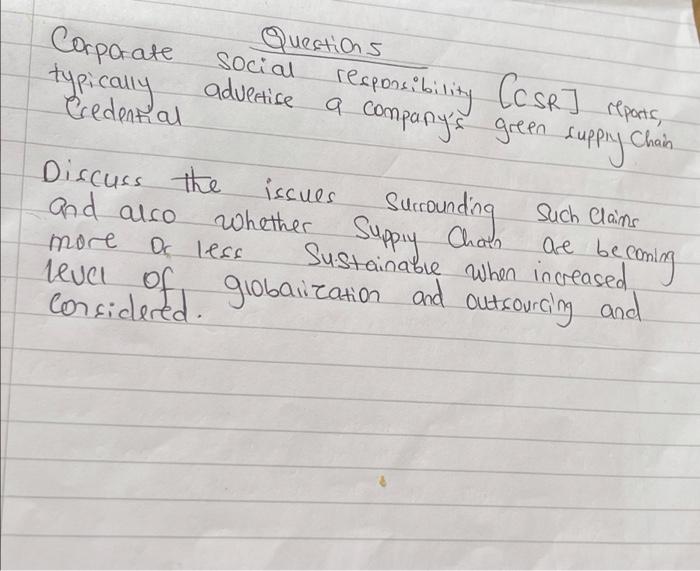 Question 5
Corporate social responsibility [CSR] reports,
typically advertise a company's green supply chain
Credential
Discuss the issues surrounding such claims
and also whether supply chain are becoming
more or less sustainable when increased
level of globalization and outsourcing and
considered.